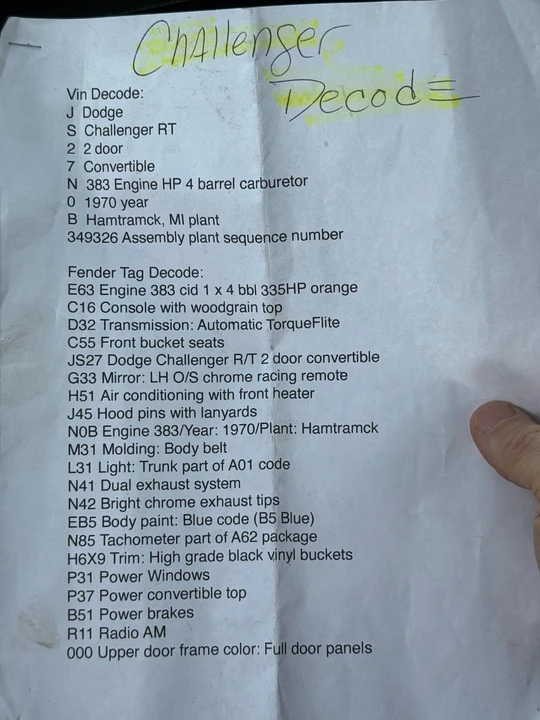 Challenger
Decode
Vin Decode:
J Dodge
S Challenger RT
2 2 door
7 Convertible
N 383 Engine HP 4 barrel carburetor
0 1970 year
B Hamtramck, MI plant
349326 Assembly plant sequence number
Fender Tag Decode:
E63 Engine 383 cid 1 x 4 bbl 335HP orange
C16 Console with woodgrain top
D32 Transmission: Automatic TorqueFlite
C55 Front bucket seats
JS27 Dodge Challenger R/T 2 door convertible
G33 Mirror: LH O/S chrome racing remote
H51 Air conditioning with front heater
J45 Hood pins with lanyards
N0B Engine 383/Year: 1970/Plant: Hamtramck
M31 Molding: Body belt
L31 Light: Trunk part of A01 code
N41 Dual exhaust system
N42 Bright chrome exhaust tips
EB5 Body paint: Blue code (B5 Blue)
N85 Tachometer part of A62 package
H6X9 Trim: High grade black vinyl buckets
P31 Power Windows
P37 Power convertible top
B51 Power brakes
R11 Radio AM
000 Upper door frame color: Full door panels